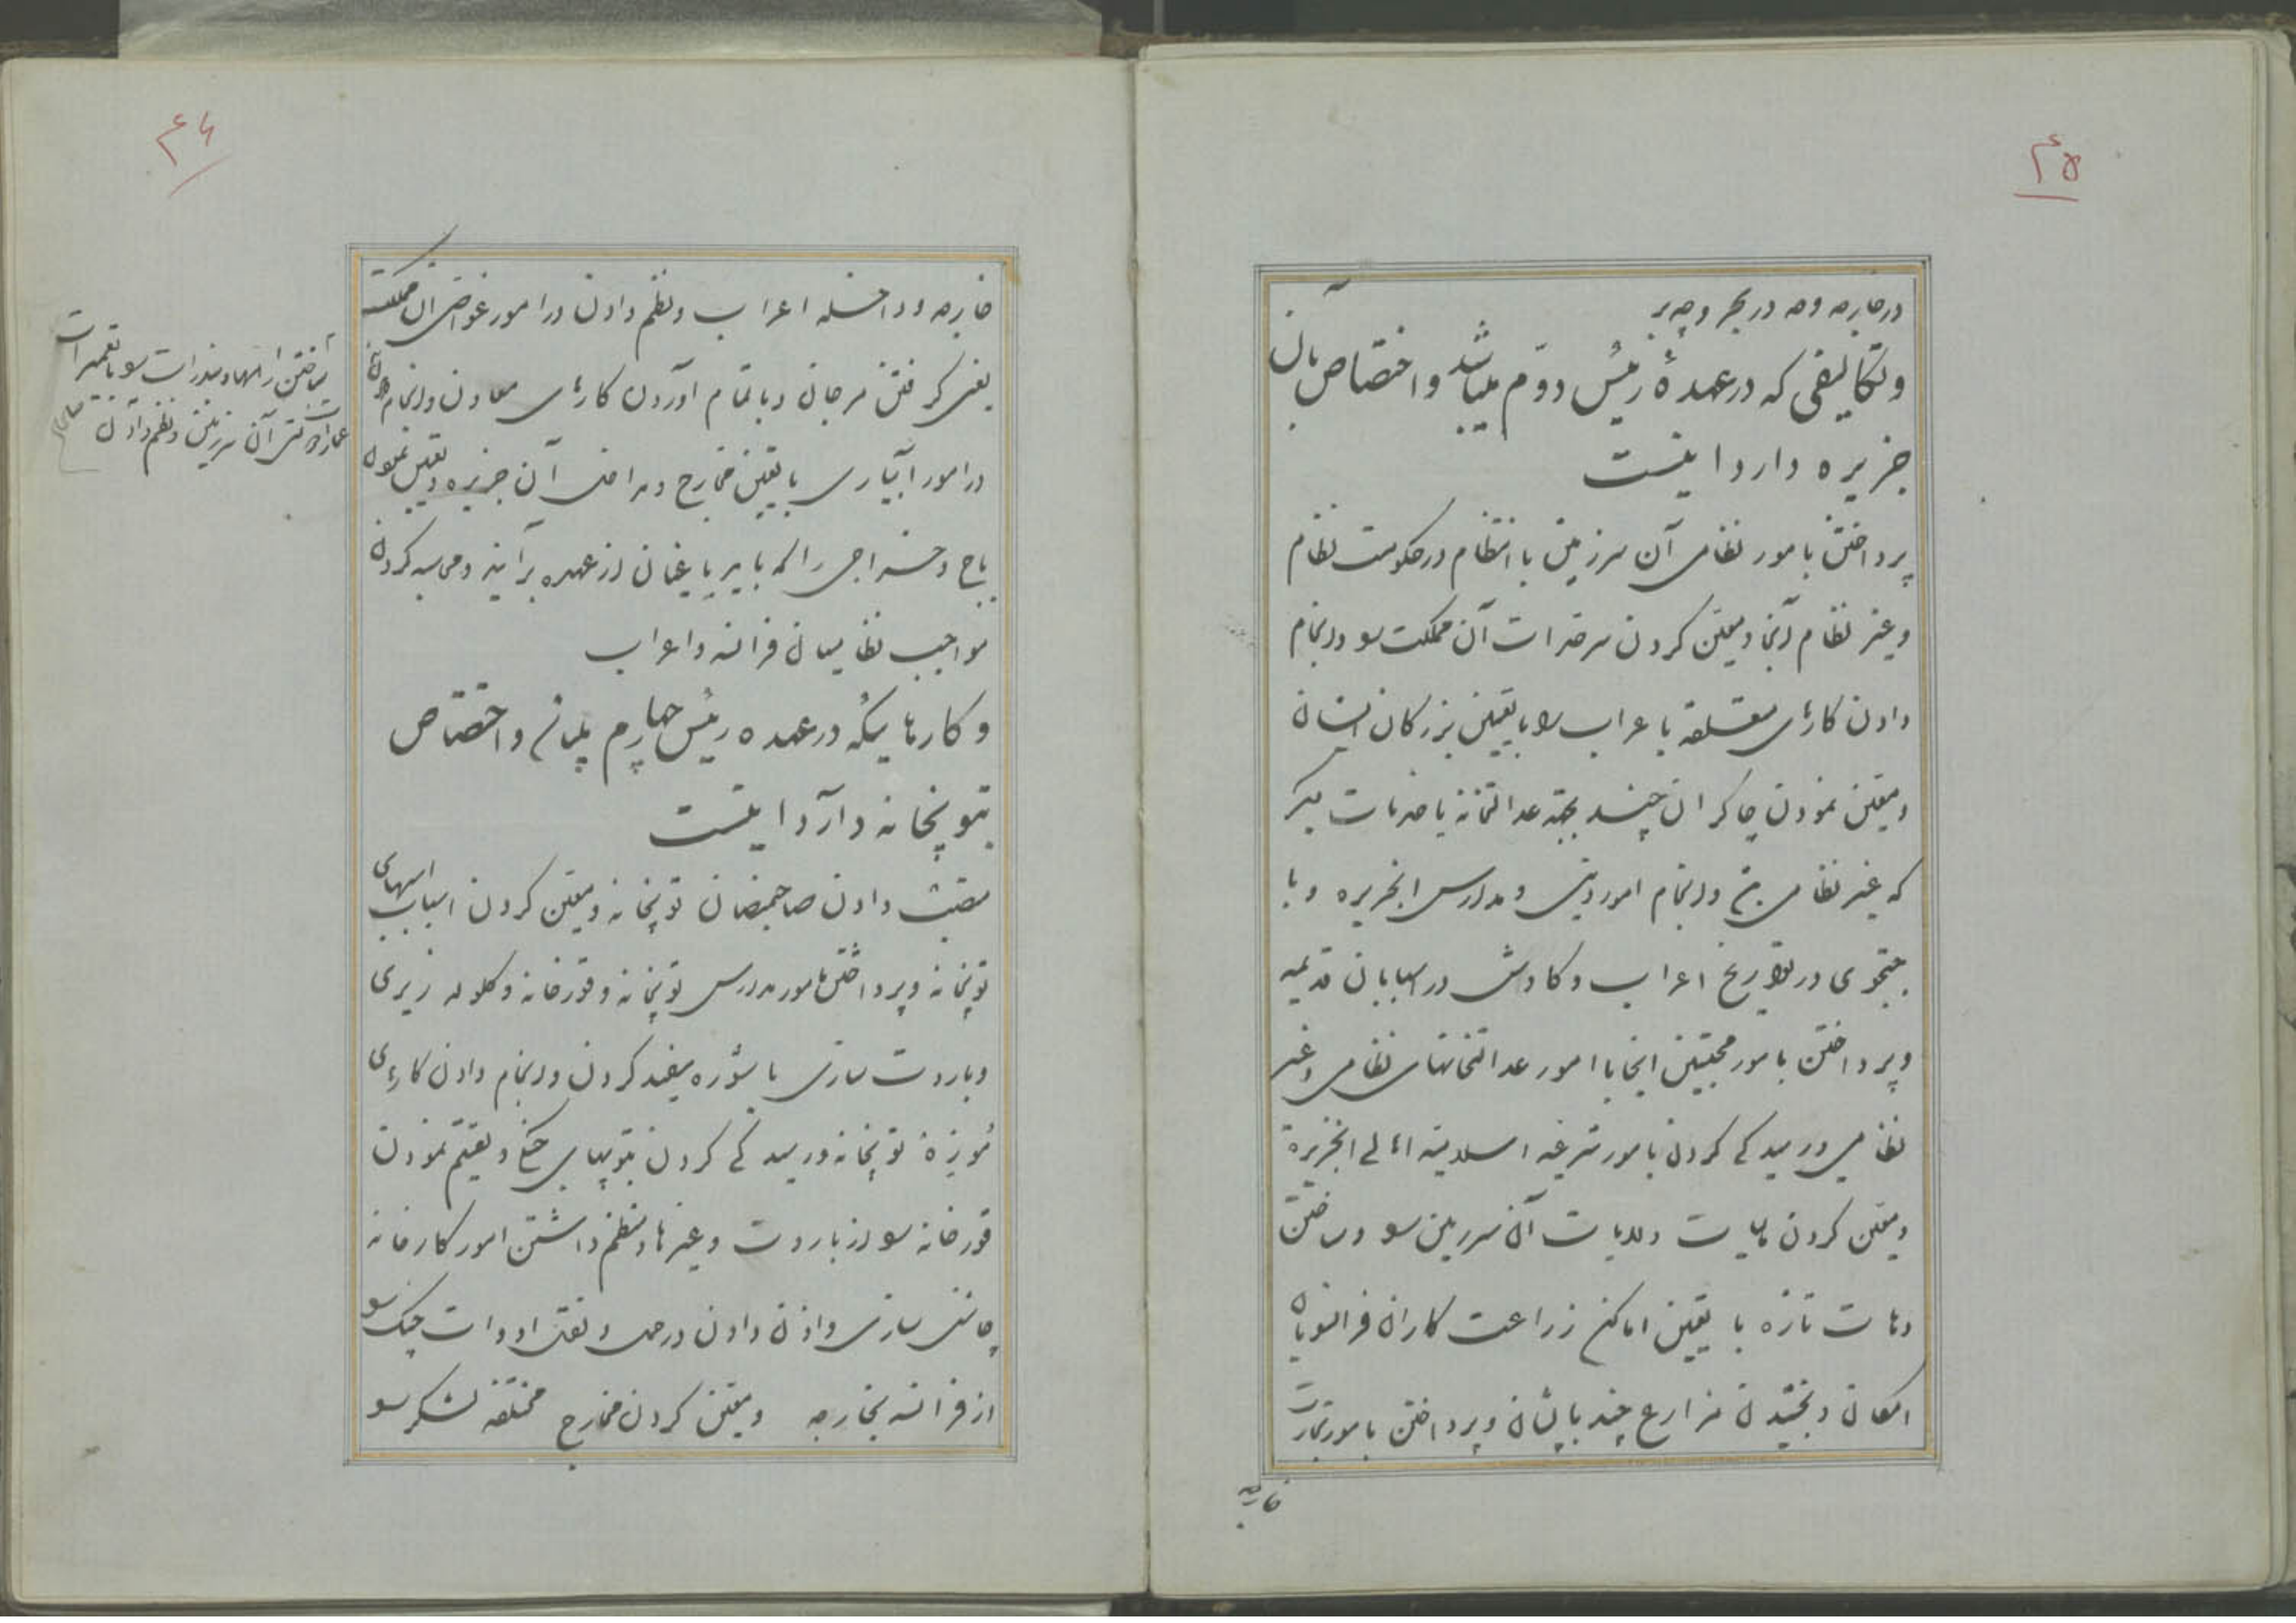 ۴۵
در خارجه و چه در بحر و چه بر
و تکالیفی که در عهدهٔ رئیس دوّم میباشد و اختصاص بآن
جزیره دارد اینست
پرداختن بامور نظامی آن سرزمین با انتظام در حکومت نظام
و غیر نظام آنجا و معین کردن سرحدات آن مملکت و انجام
دادن کارهای متعلقه باعراب با تعیین بزرگان ایشان
و معین نمودن چاکران چند بجهة عدالتخانه یا خدمات دیگر
که غیر نظامی و انجام امور دینی و مدارس الجزیره و با
جستجوی در تواریخ اعراب و کاوش در قدیمه
و پرداختن بامور اینجا با امور عدالتخانهای نظامی و غیر
نظامی و رسیدگی کردن بامور شرعیه اسلامیه اهالی الجزیره
و معین کردن مالیات ولایات آن سرزمین و ساختن
دهات تازه با تعیین اماکن زراعت کاران فرانسویان
امکان و بخشیدن مزارع چند بایشان و پرداختن بامور تجارت
خارجه
۴۶
خارجه و داخله اعراب و نظم دادن در امور آن مملکت
یعنی گرفتن مرجان و باتمام آوردن کارهای معادن و انجام
در امور آبیاری با تعیین مخارج و مداخل آن جزیره و تعیین نمودن
باج و خراجی را که باید یاغیان از عهده برآیند و محاسبه کردن
مواجب نظامیان فرانسه و اعراب
ساختن راهها و بندرات با تعمیرات
عمارات آن سرزمین و نظم دادن
و کارهائیکه در عهده رئیس چهارم و اختصاص
بتوپخانه دارد اینست
منصب دادن صاحبمنصبان توپخانه و معین کردن اسبابهای
توپخانه و پرداختن بامور مدارس توپخانه و قورخانه و گلوله ریزی
و باروت سازی با شوره سفید کردن و انجام دادن کارهای
موزهٔ توپخانه و رسیدگی کردن بتوپهای و تقسیم نمودن
قورخانه از باروت و غیرها و منظم داشتن امور کارخانه
چاشنی سازی و اذن دادن در حمل و نقل ادوات جنگ
از فرانسه بخارجه و معین کردن مخارج مختلفه لشکر